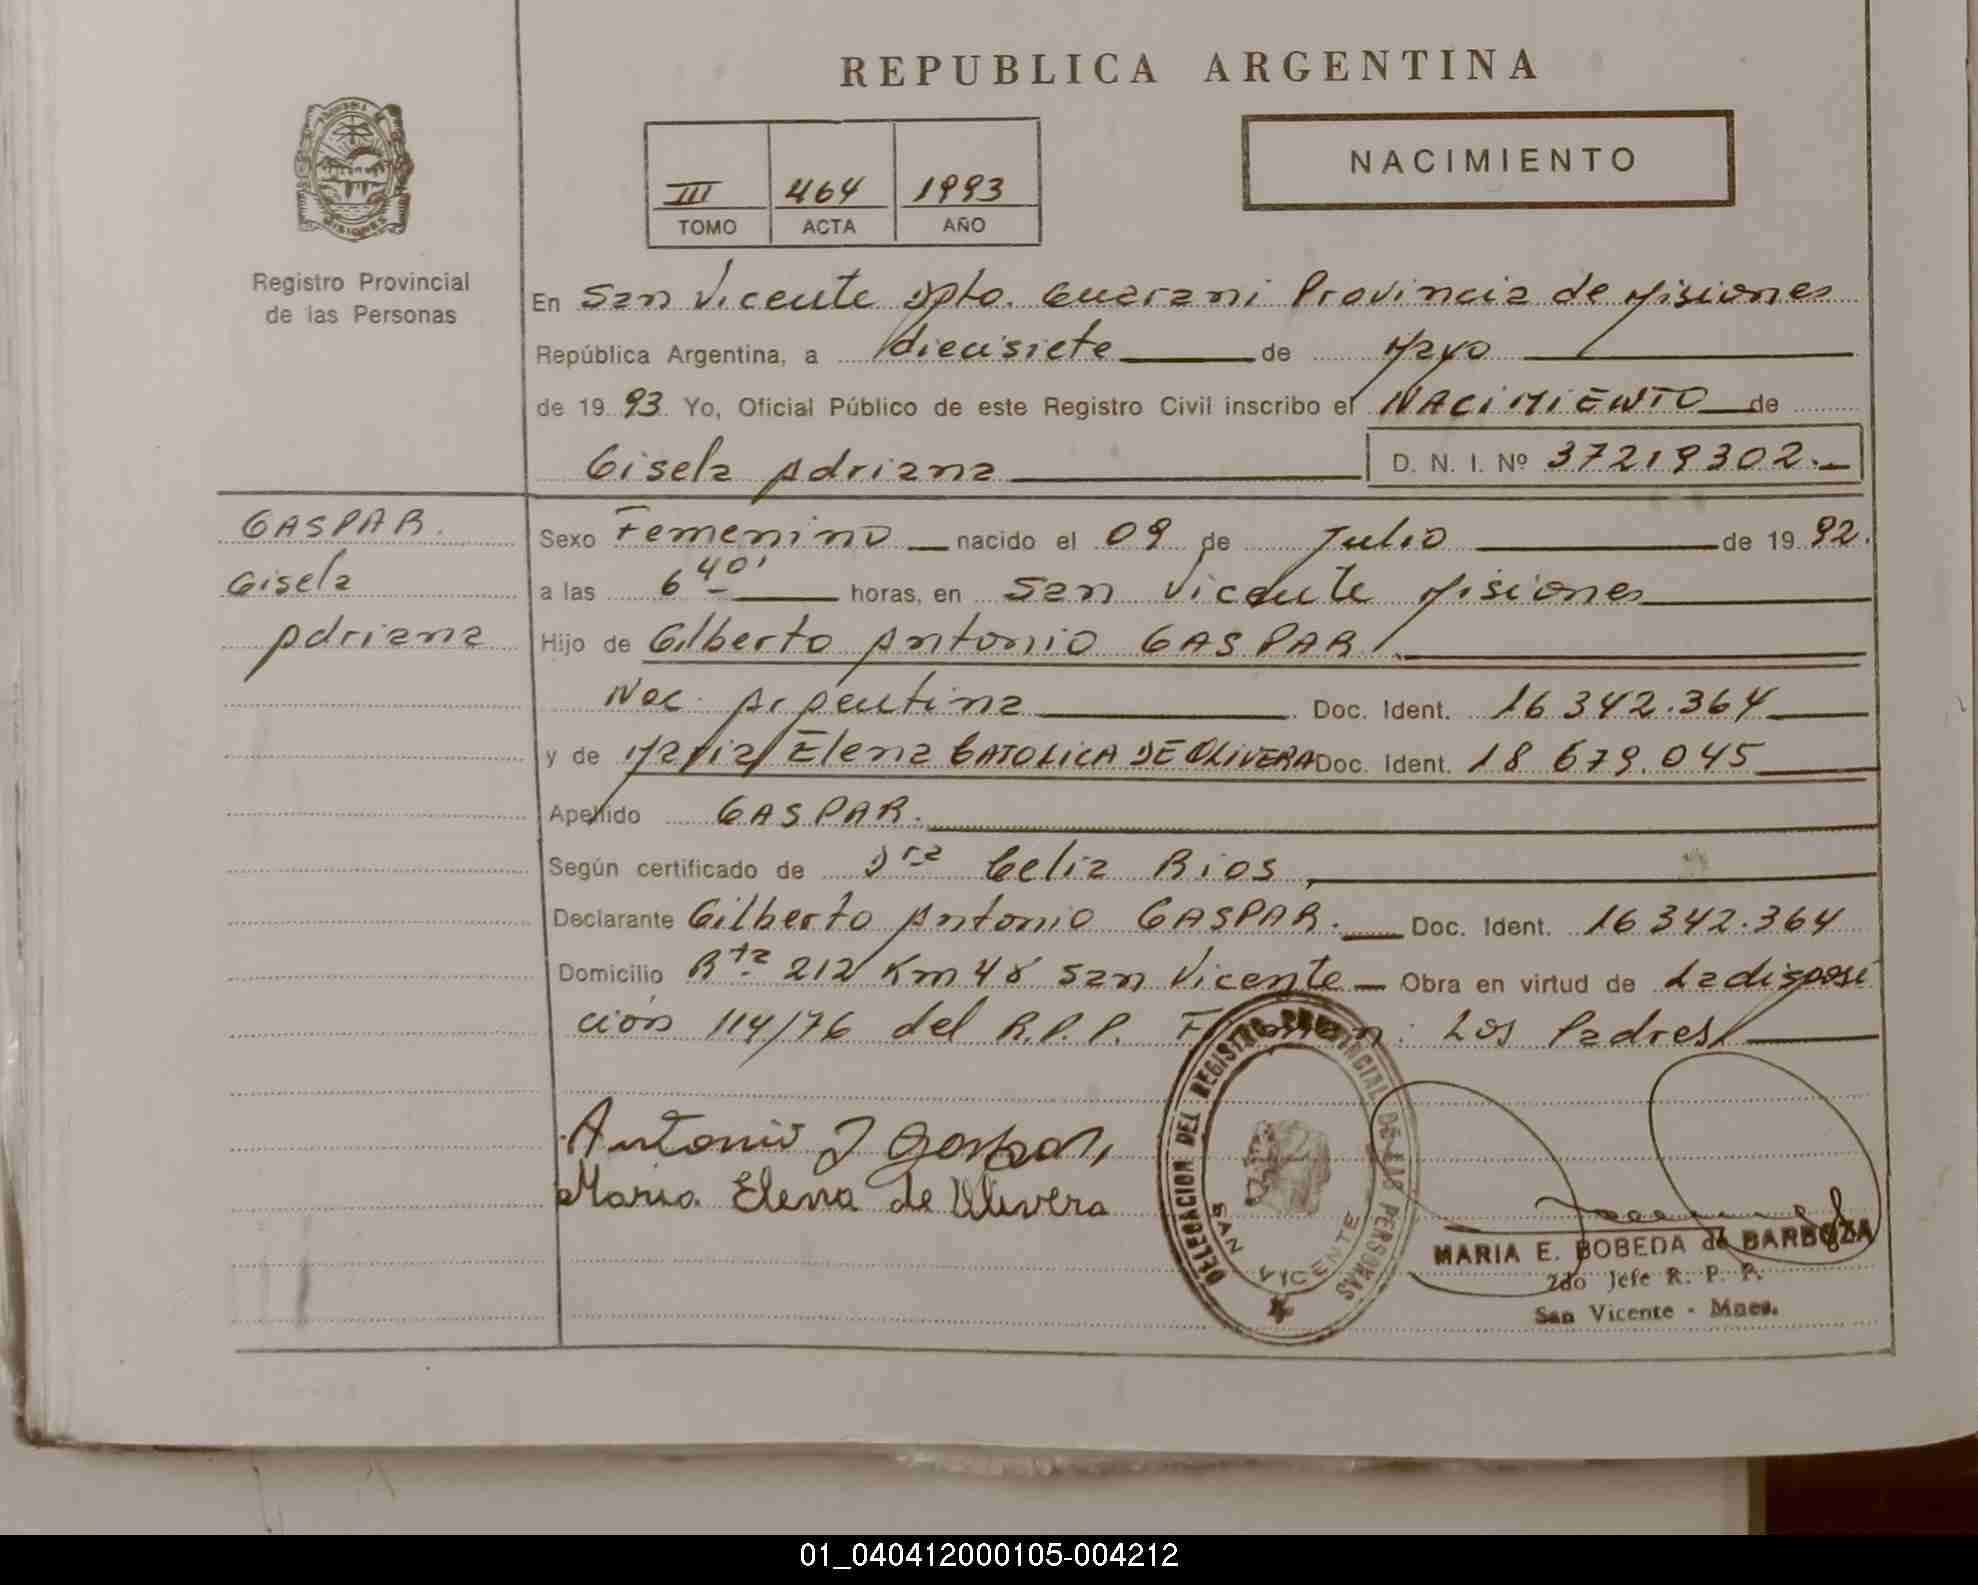 REPUBLICA ARGENTINA
III 464 1993
TOMO ACTA AÑO
NACIMIENTO
MISIONES
Registro Provincial
de las Personas
En San Vicente Dpto. Guarani Provincia de Misiones
República Argentina, a diecisiete de Mayo
de 19 93 Yo, Oficial Público de este Registro Civil inscribo el NACIMIENTO de
Gisela Adriana D. N. I. Nº 37219302.-
GASPAR.
Gisela
Adriana
Sexo Femenino nacido el 09 de Julio de 19 92.
a las 6 40' horas, en San Vicente Misiones
Hijo de Gilberto Antonio GASPAR.
Nac. Argentina Doc. Ident. 16 342.364
y de Maria Elena CATOLICA DE OLIVERA Doc. Ident. 18 679.045
Apellido GASPAR.
Según certificado de Dra Celia Rios,
Declarante Gilberto Antonio GASPAR. Doc. Ident. 16 342.364
Domicilio Rta 212 Km 48 San Vicente Obra en virtud de La disposi
ción 114/76 del R.P.P. Firman: Los Padres
Antonio J Gaspar,
Maria Elena de Olivera
DELEGACION DEL REGISTRO PROVINCIAL DE LAS PERSONAS
SAN VICENTE
MARIA E. BOBEDA de BARBOZA
2do Jefe R. P. P.
San Vicente - Mnes.
01_040412000105-004212